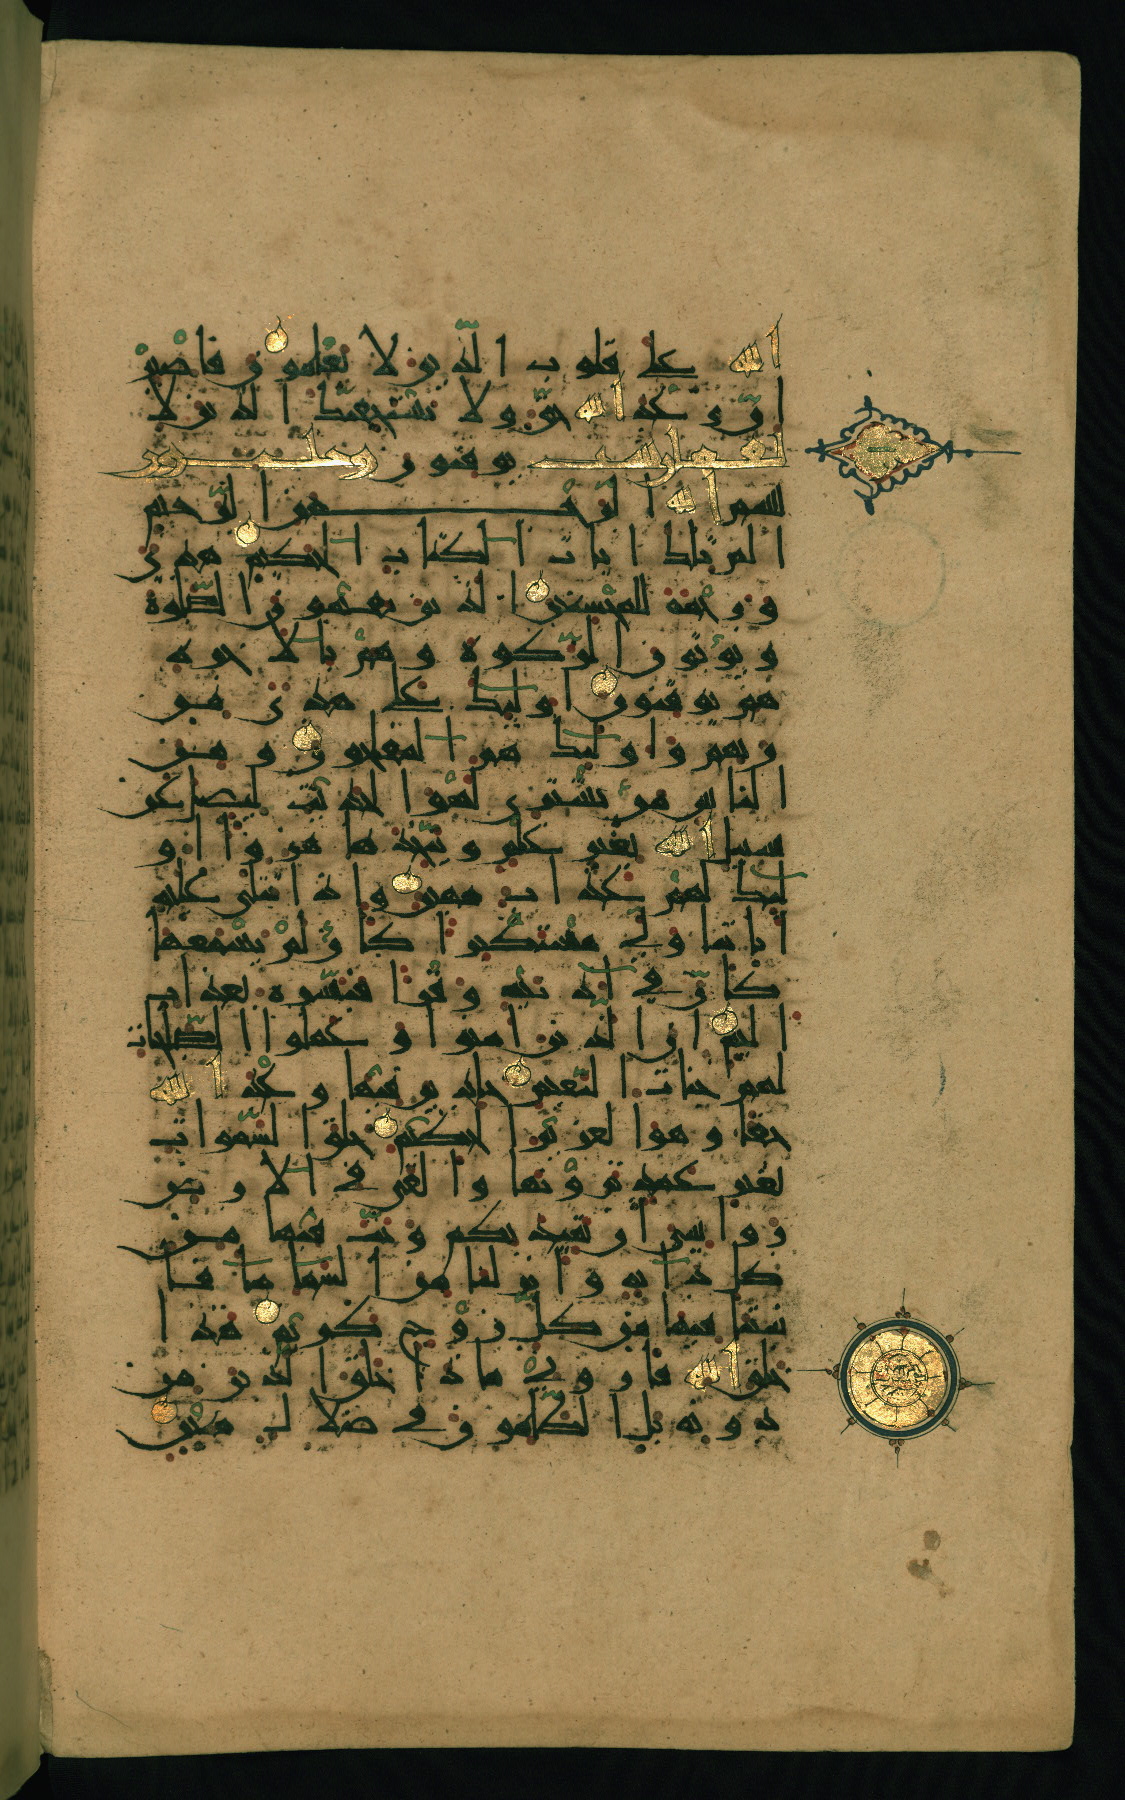 الله على قلوب الذين لا يعلمون فاصبر
ان وعد الله حق ولا يستخفنك الذين لا
يوقنون
بسم الله الرحمن الرحيم
الم تلك ايات الكتاب الحكيم هدى
ورحمة للمحسنين الذين يقيمون الصلوة
ويؤتون الزكوة وهم بالاخرة
هم يوقنون اولئك على هدى من
ربهم واولئك هم المفلحون ومن
الناس من يشتري لهو الحديث ليضل عن
سبيل الله بغير علم ويتخذها هزوا او
لئك لهم عذاب مهين واذا تتلى عليه
اياتنا ولى مستكبرا كان لم يسمعها
كان في اذنيه وقرا فبشره بعذاب
اليم ان الذين امنوا وعملوا الصلحات
لهم جنات النعيم خالدين فيها وعد الله
حقا وهو العزيز الحكيم خلق السموات
بغير عمد ترونها والقى في الارض
رواسي ان تميد بكم وبث فيها من
كل دابة وانزلنا من السماء ماء فا
نبتنا فيها من كل زوج كريم هذا
خلق الله فاروني ماذا خلق الذين من
دونه بل الظلمون في ضلال مبين